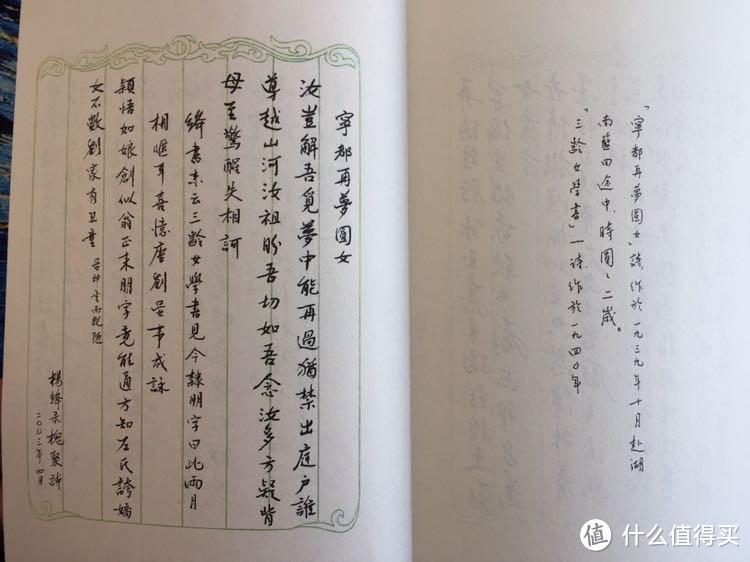 「寧都再夢圓女」詩,作於一九三九年十月赴湖
南藍田途中,時圓々二歲。
「三齡女學書」一詩作於一九四〇年
寧都再夢圓女
汝豈解吾覓夢中能再過猶禁出庭戶誰
導越山河汝祖盼吾切如吾念汝多方疑背
母至驚醒失相訶
絳書來云三齡女學書見今隸朋字曰此兩月
相昵耳喜憶唐劉晏事成詠
穎悟如娘創似翁正來朋字竟能通方知左氏誇嬌
女不數劉家有丑童 晏神童而貌陋
楊絳录槐聚詩
二〇〇三年四月
值 什么值得买